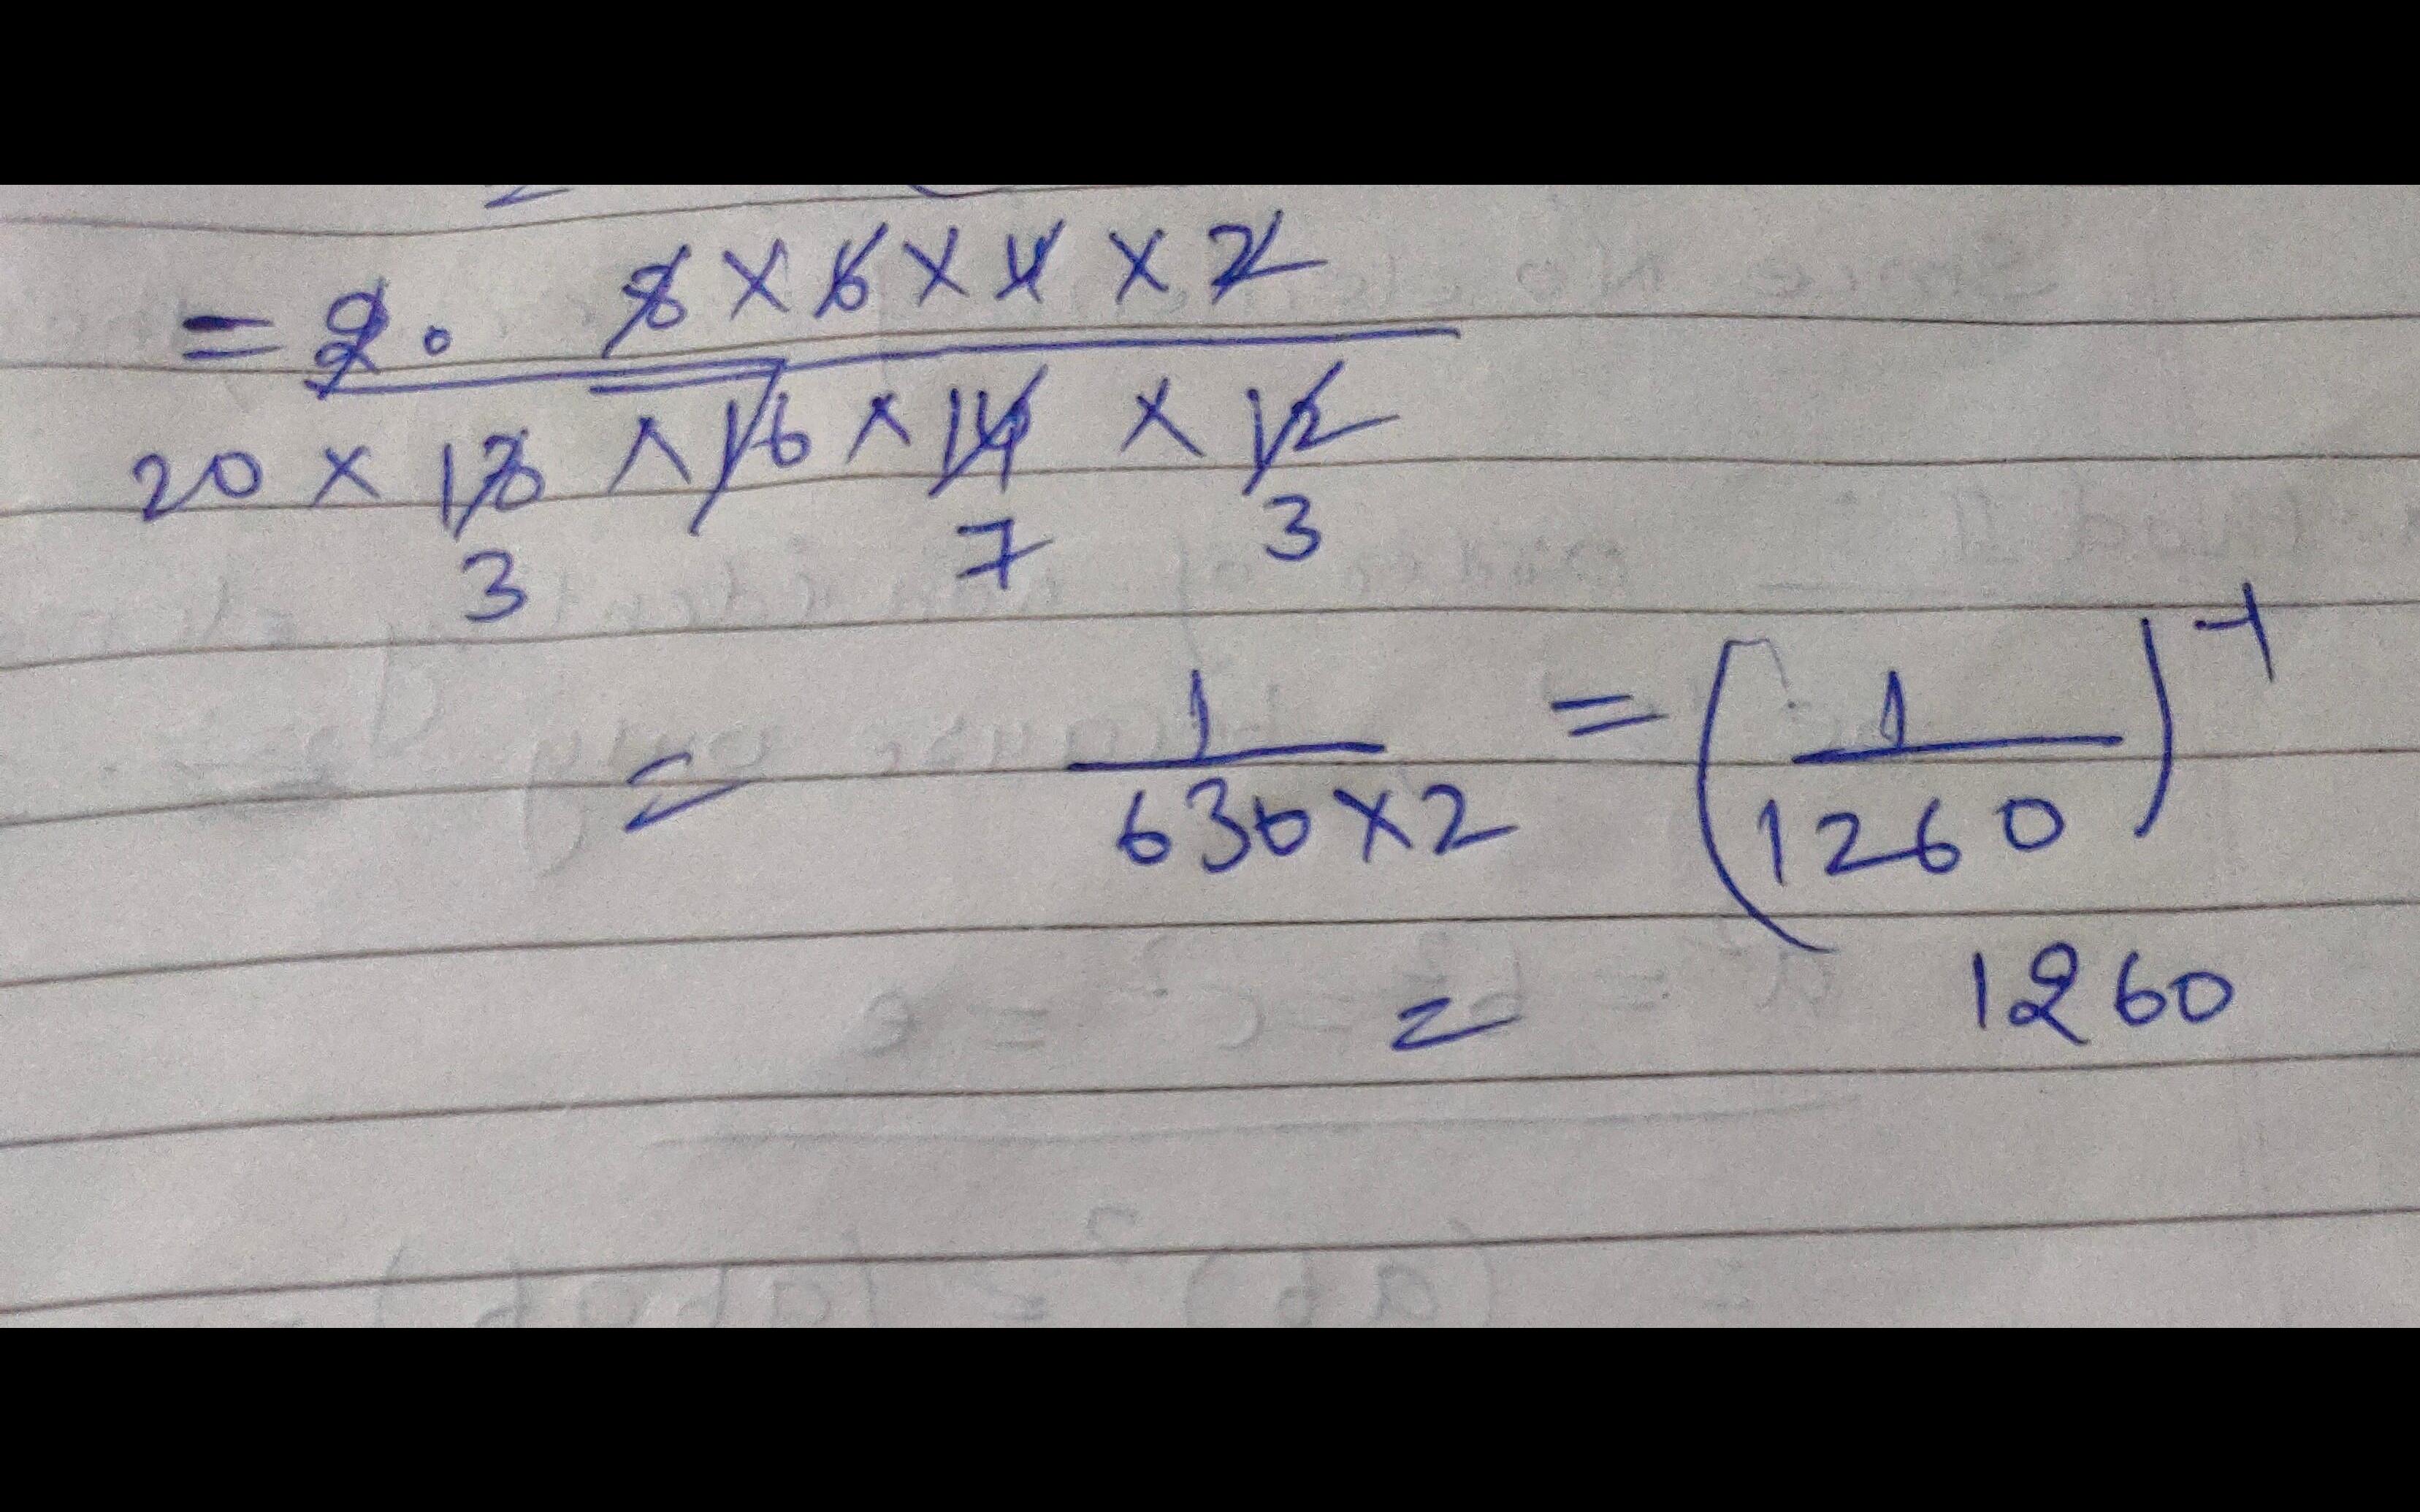 = 2. 8 × 6 × 4 × 2
20 × 18 × 16 × 14 × 12
3 7 3
= 1 / 630 × 2 = ( 1 / 1260 )^-1
= 1260